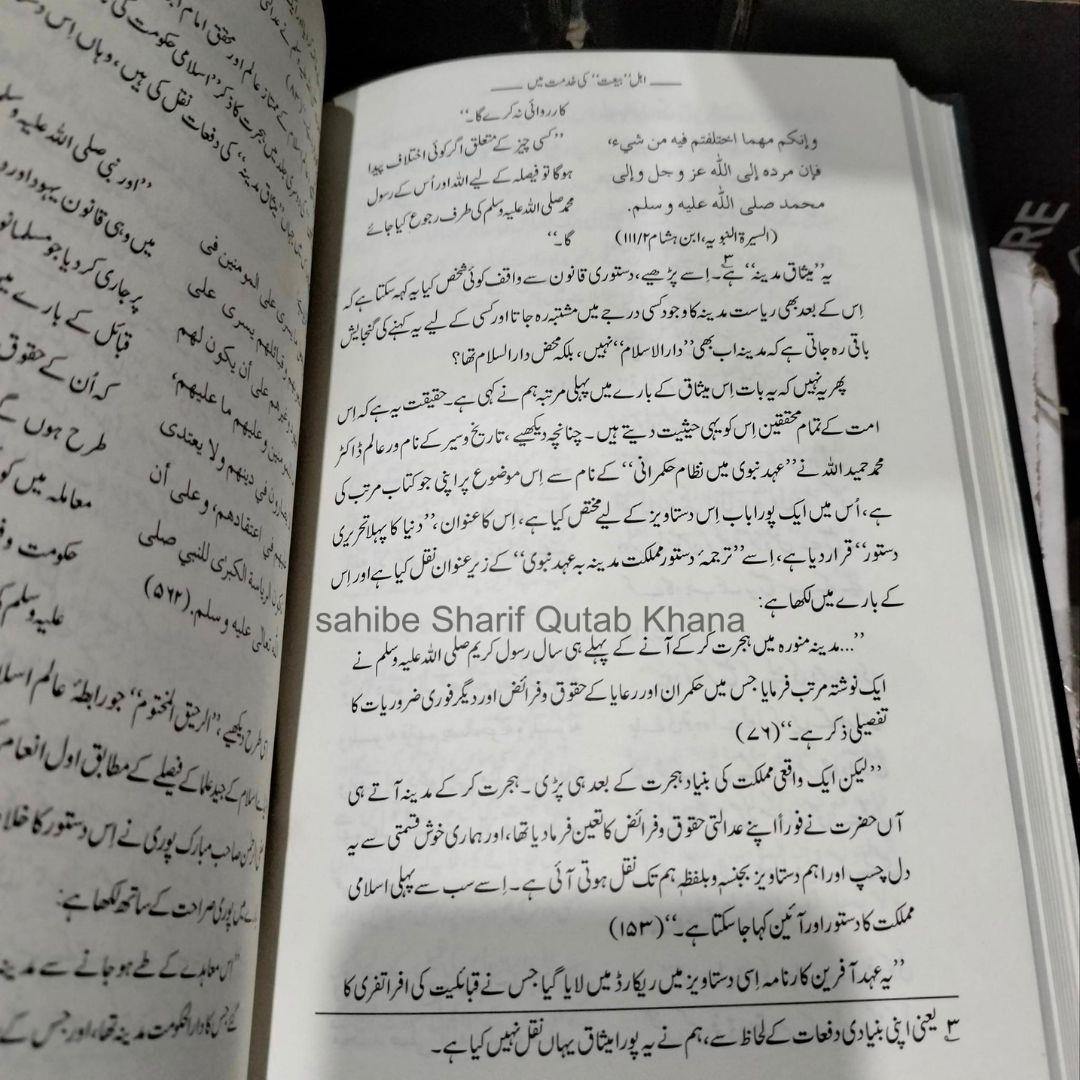 اہل ”بیعت“ کی خدمت میں
کارروائی نہ کرے گا۔“
وإنكم مهما اختلفتم فيه من شيء،
فإن مرده إلى الله عز و جل وإلى
محمد صلى الله عليه و سلم.
(السیرۃ النبویہ، ابن ہشام ۲/۱۱۱)
”کسی چیز کے متعلق اگر کوئی اختلاف پیدا
ہوگا تو فیصلہ کے لیے اللہ اور اُس کے رسول
محمد صلی اللہ علیہ وسلم کی طرف رجوع کیا جائے
گا۔“
یہ ”میثاق مدینہ“ ہے۳۔ اِسے پڑھیے، دستوری قانون سے واقف کوئی شخص کیا یہ کہہ سکتا ہے کہ
اِس کے بعد بھی ریاست مدینہ کا وجود کسی درجے میں مشتبہ رہ جاتا اور کسی کے لیے یہ کہنے کی گنجایش
باقی رہ جاتی ہے کہ مدینہ اب بھی ”دار الاسلام“ نہیں، بلکہ محض دار السلام تھا؟
پھر یہ نہیں کہ یہ بات اِس میثاق کے بارے میں پہلی مرتبہ ہم نے کہی ہے۔ حقیقت یہ ہے کہ اِس
امت کے تمام محققین اِس کو یہی حیثیت دیتے ہیں۔ چنانچہ دیکھیے، تاریخ و سیر کے نام ور عالم ڈاکٹر
محمد حمید اللہ نے ”عہد نبوی میں نظام حکمرانی“ کے نام سے اِس موضوع پر اپنی جو کتاب مرتب کی
ہے، اُس میں ایک پورا باب اِس دستاویز کے لیے مختص کیا ہے، اِس کا عنوان، ”دنیا کا پہلا تحریری
دستور“ قرار دیا ہے، اِسے ”ترجمۂ دستور مملکت مدینہ بہ عہد نبوی“ کے زیر عنوان نقل کیا ہے اور اِس
کے بارے میں لکھا ہے:
sahibe Sharif Qutab Khana
”...مدینہ منورہ میں ہجرت کر کے آنے کے پہلے ہی سال رسول کریم صلی اللہ علیہ وسلم نے
ایک نوشتہ مرتب فرمایا جس میں حکمران اور رعایا کے حقوق و فرائض اور دیگر فوری ضروریات کا
تفصیلی ذکر ہے۔“ (۷۶)
”لیکن ایک واقعی مملکت کی بنیاد ہجرت کے بعد ہی پڑی۔ ہجرت کر کے مدینہ آتے ہی
آں حضرت نے فوراً اپنے عدالتی حقوق و فرائض کا تعین فرما دیا تھا، اور ہماری خوش قسمتی سے یہ
دل چسپ اور اہم دستاویز بجنسہٖ و بلفظہٖ ہم تک نقل ہوتی آئی ہے۔ اِسے سب سے پہلی اسلامی
مملکت کا دستور اور آئین کہا جا سکتا ہے۔“ (۱۵۳)
”یہ عہد آفرین کارنامہ اِسی دستاویز میں ریکارڈ میں لایا گیا جس نے قبائلیت کی افراتفری کا
۳ یعنی اپنی بنیادی دفعات کے لحاظ سے، ہم نے یہ پورا میثاق یہاں نقل نہیں کیا ہے۔
”اور نبی صلی اللہ علیہ وسلم
میں وہی قانون یہود اور
پر جاری کر دیا جو مسلمانوں
قبائل کے بارے میں
کہ اُن کے حقوق
طرح ہوں گے
معاملہ میں کو
علیہ وسلم
على المومنين في
وقبائلهم يسرى على
على أن يكون لهم
وعليهم ما عليهم،
في دينهم ولا يعتدى
في اعتقادهم، وعلى أن
الرياسة الكبرى للنبي صلى
تعالى عليه و سلم. (۵۶۲)
طرح دیکھیے، ”الرحیق المختوم“ جو رابطۂ عالم اسلامی
کے جید علما کے فیصلے کے مطابق اول انعام
صاحب مبارک پوری نے اِس دستور کا خلاصہ
میں پوری صراحت کے ساتھ لکھا ہے:
”اس معاہدے کے طے ہو جانے سے مدینہ
جس کا دار الحکومت مدینہ تھا، اور جس کے
RE